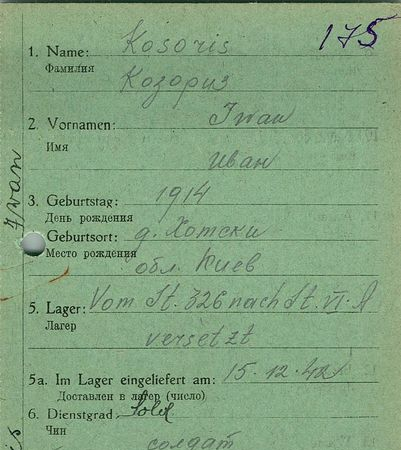 175
1. Name: Kosoris
Фамилия
Козориз
2. Vornamen: Iwan
Имя
Иван
3. Geburtstag: 1914
День рождения
Geburtsort: д. Хотски
Место рождения
обл. Киев
5. Lager: Vom St. 326 nach St. VI. A
Лагер
versetzt
5a. Im Lager eingeliefert am: 15.12.42
Доставлен в лагер (число)
6. Dienstgrad Sold
Чин
солдат
Iwan